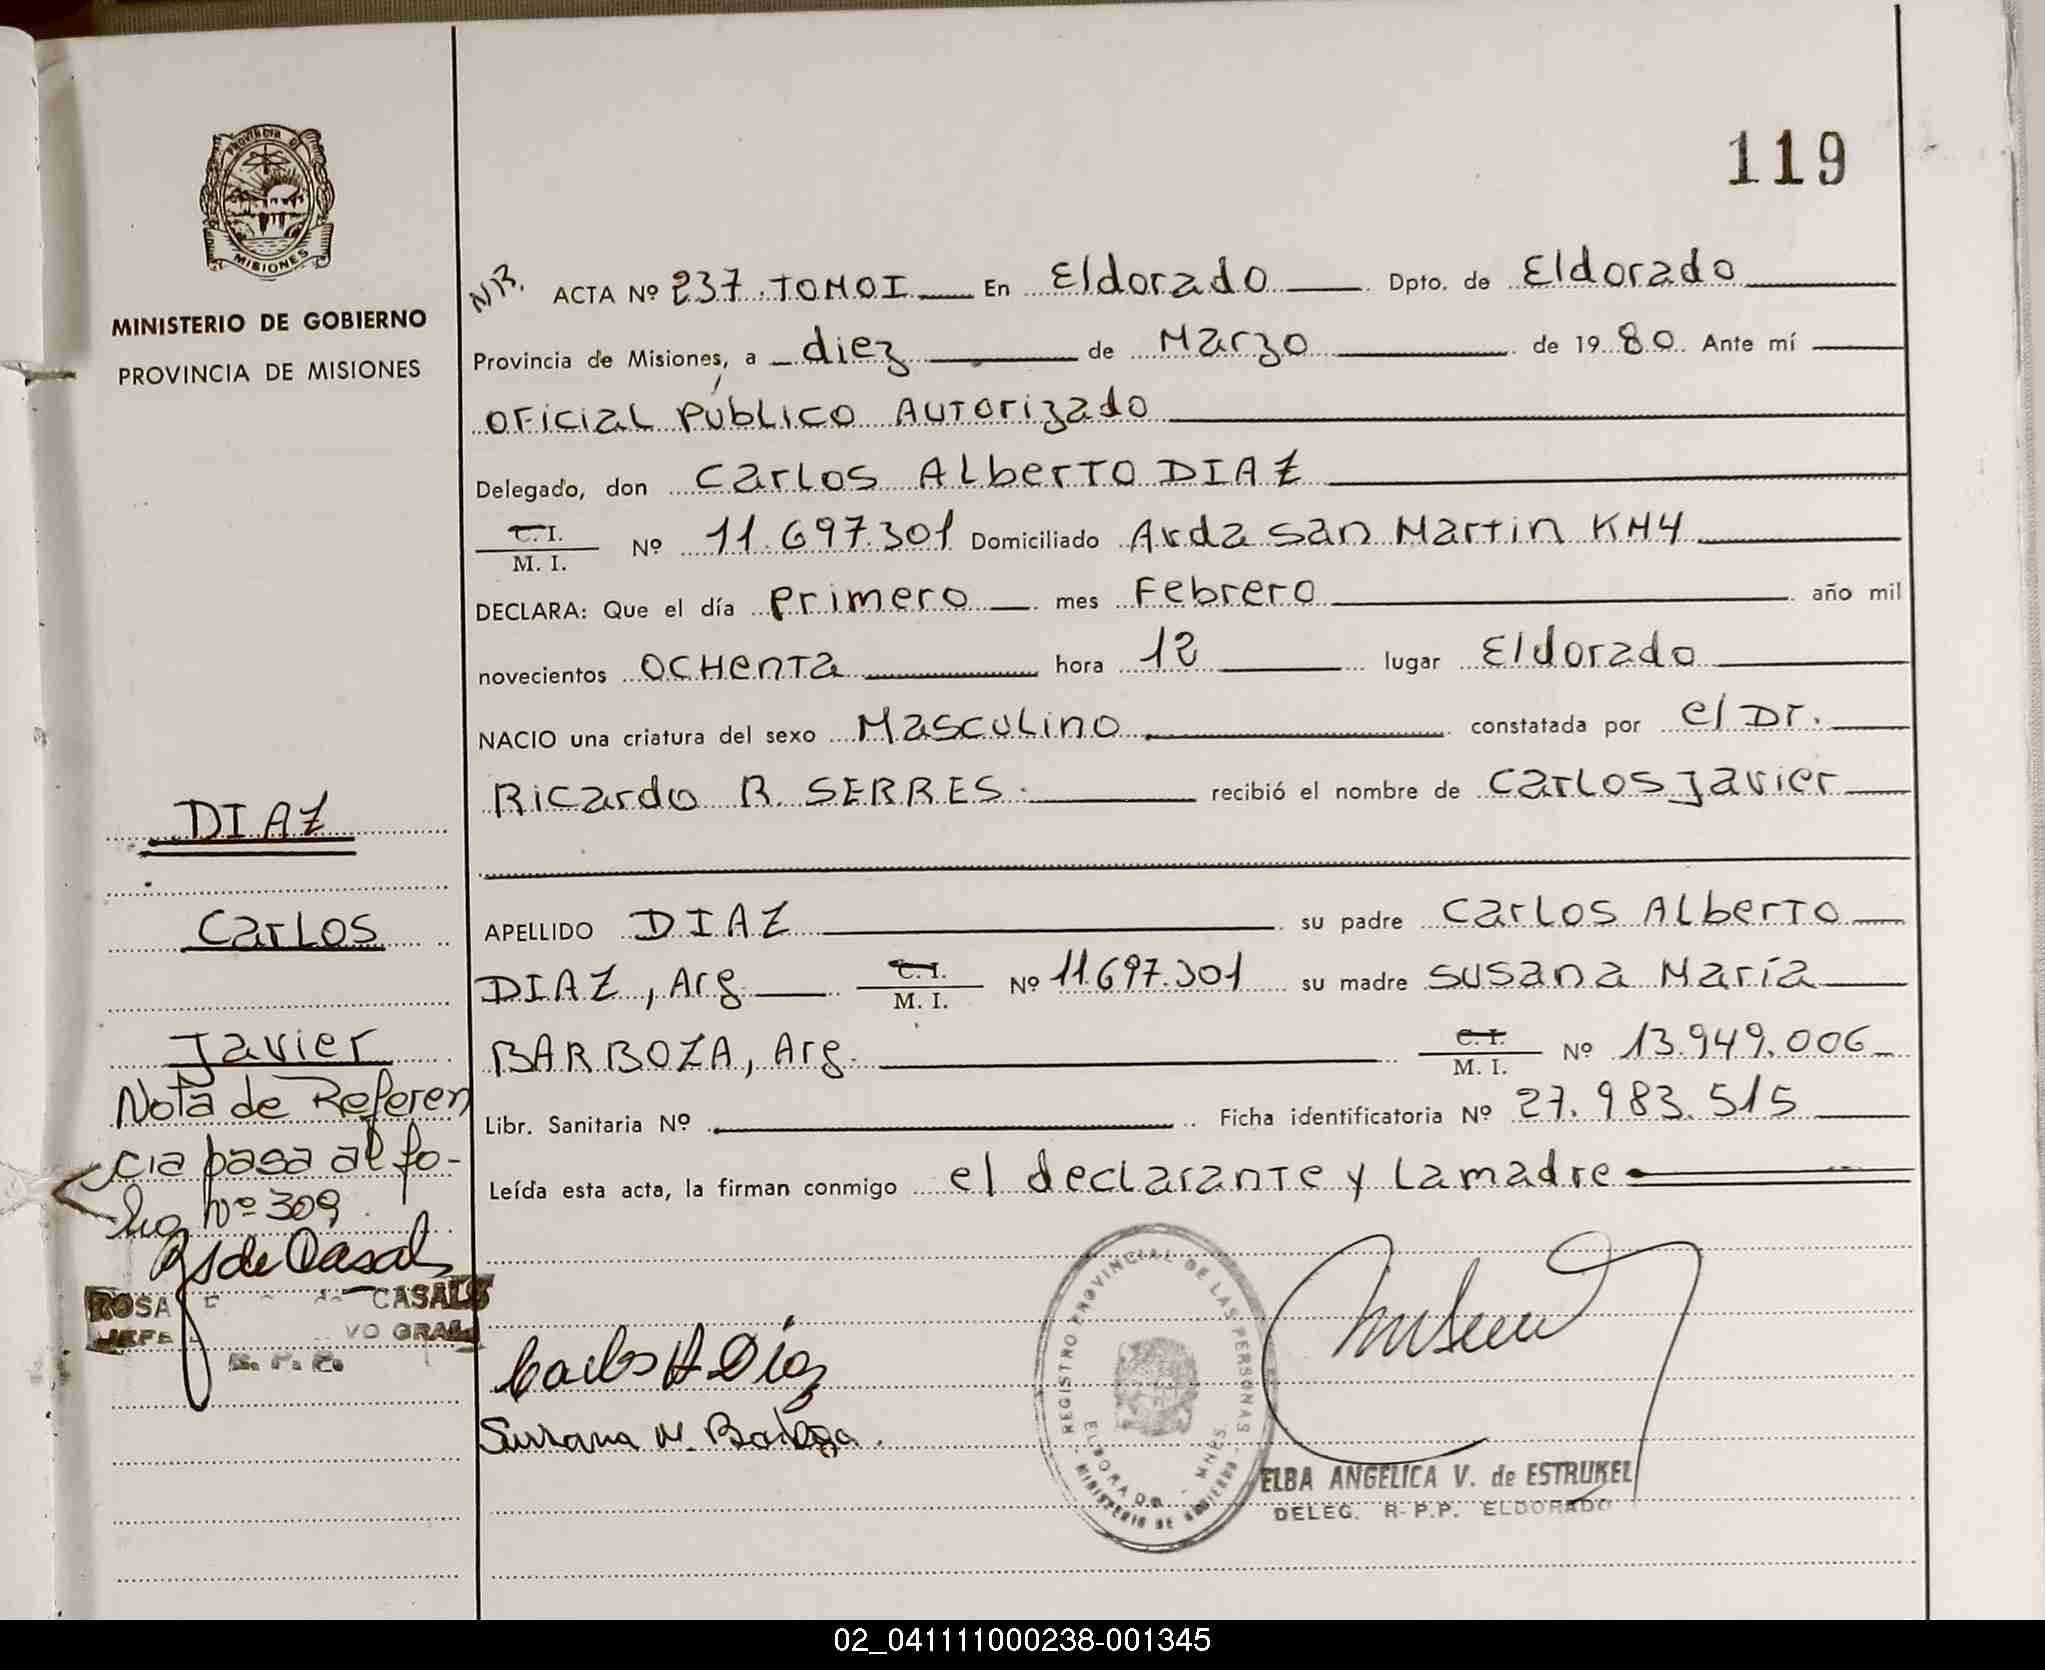 PROVINCIA D
MISIONES
MINISTERIO DE GOBIERNO
PROVINCIA DE MISIONES
119
NB. ACTA Nº 237.TOMO I En Eldorado Dpto. de Eldorado
Provincia de Misiones, a diez de Marzo de 1980. Ante mí
OFicial Público Autorizado
Delegado, don Carlos Alberto DIAZ
C. I.
M. I. Nº 11.697.301 Domiciliado Avda San Martin KM4
DECLARA: Que el día Primero mes Febrero año mil
novecientos OCHenTa hora 12 lugar Eldorado
NACIO una criatura del sexo Masculino constatada por el Dr.
Ricardo R. SERRES. recibió el nombre de Carlos Javier
APELLIDO DIAZ su padre Carlos Alberto
DIAZ, Arg. C. I. M. I. Nº 11.697.301 su madre Susana María
BARBOZA, Arg. C. I. M. I. Nº 13.949.006
Libr. Sanitaria Nº Ficha identificatoria Nº 27.983.515
Leída esta acta, la firman conmigo el declarante y la madre
DIAZ
Carlos
Javier
Nota de Referen
cia pasa al fo-
lio Nº 309.
de Casals
ROSA CASALS
JEFE VO GRAL
Carlos A Díaz
Susana M. Barboza.
REGISTRO PROVINCIAL DE LAS PERSONAS
ELDORADO - MNES.
MINISTERIO DE GOBIERNO
ELBA ANGELICA V. de ESTRUKEL
DELEG. R.P.P. ELDORADO
02_041111000238-001345